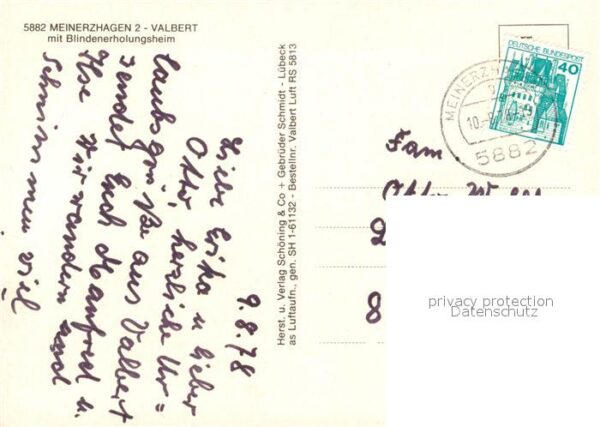 5882 MEINERZHAGEN 2 - VALBERT
mit Blindenerholungsheim
9.8.78
Liebe Erika u lieber
Otto, herzliche Ur=
laubsgrüße aus Valbert
sendet Euch Manfred u.
Ilse Wir wandern und
schwimmen viel
Herst. u. Verlag Schöning & Co + Gebrüder Schmidt - Lübeck
as Luftaufn., gen. SH 1-61132 - Bestellnr. Valbert Luft RS 5813
DEUTSCHE BUNDESPOST
40
MEINERZH
5882
Fam.
Otto
privacy protection
Datenschutz